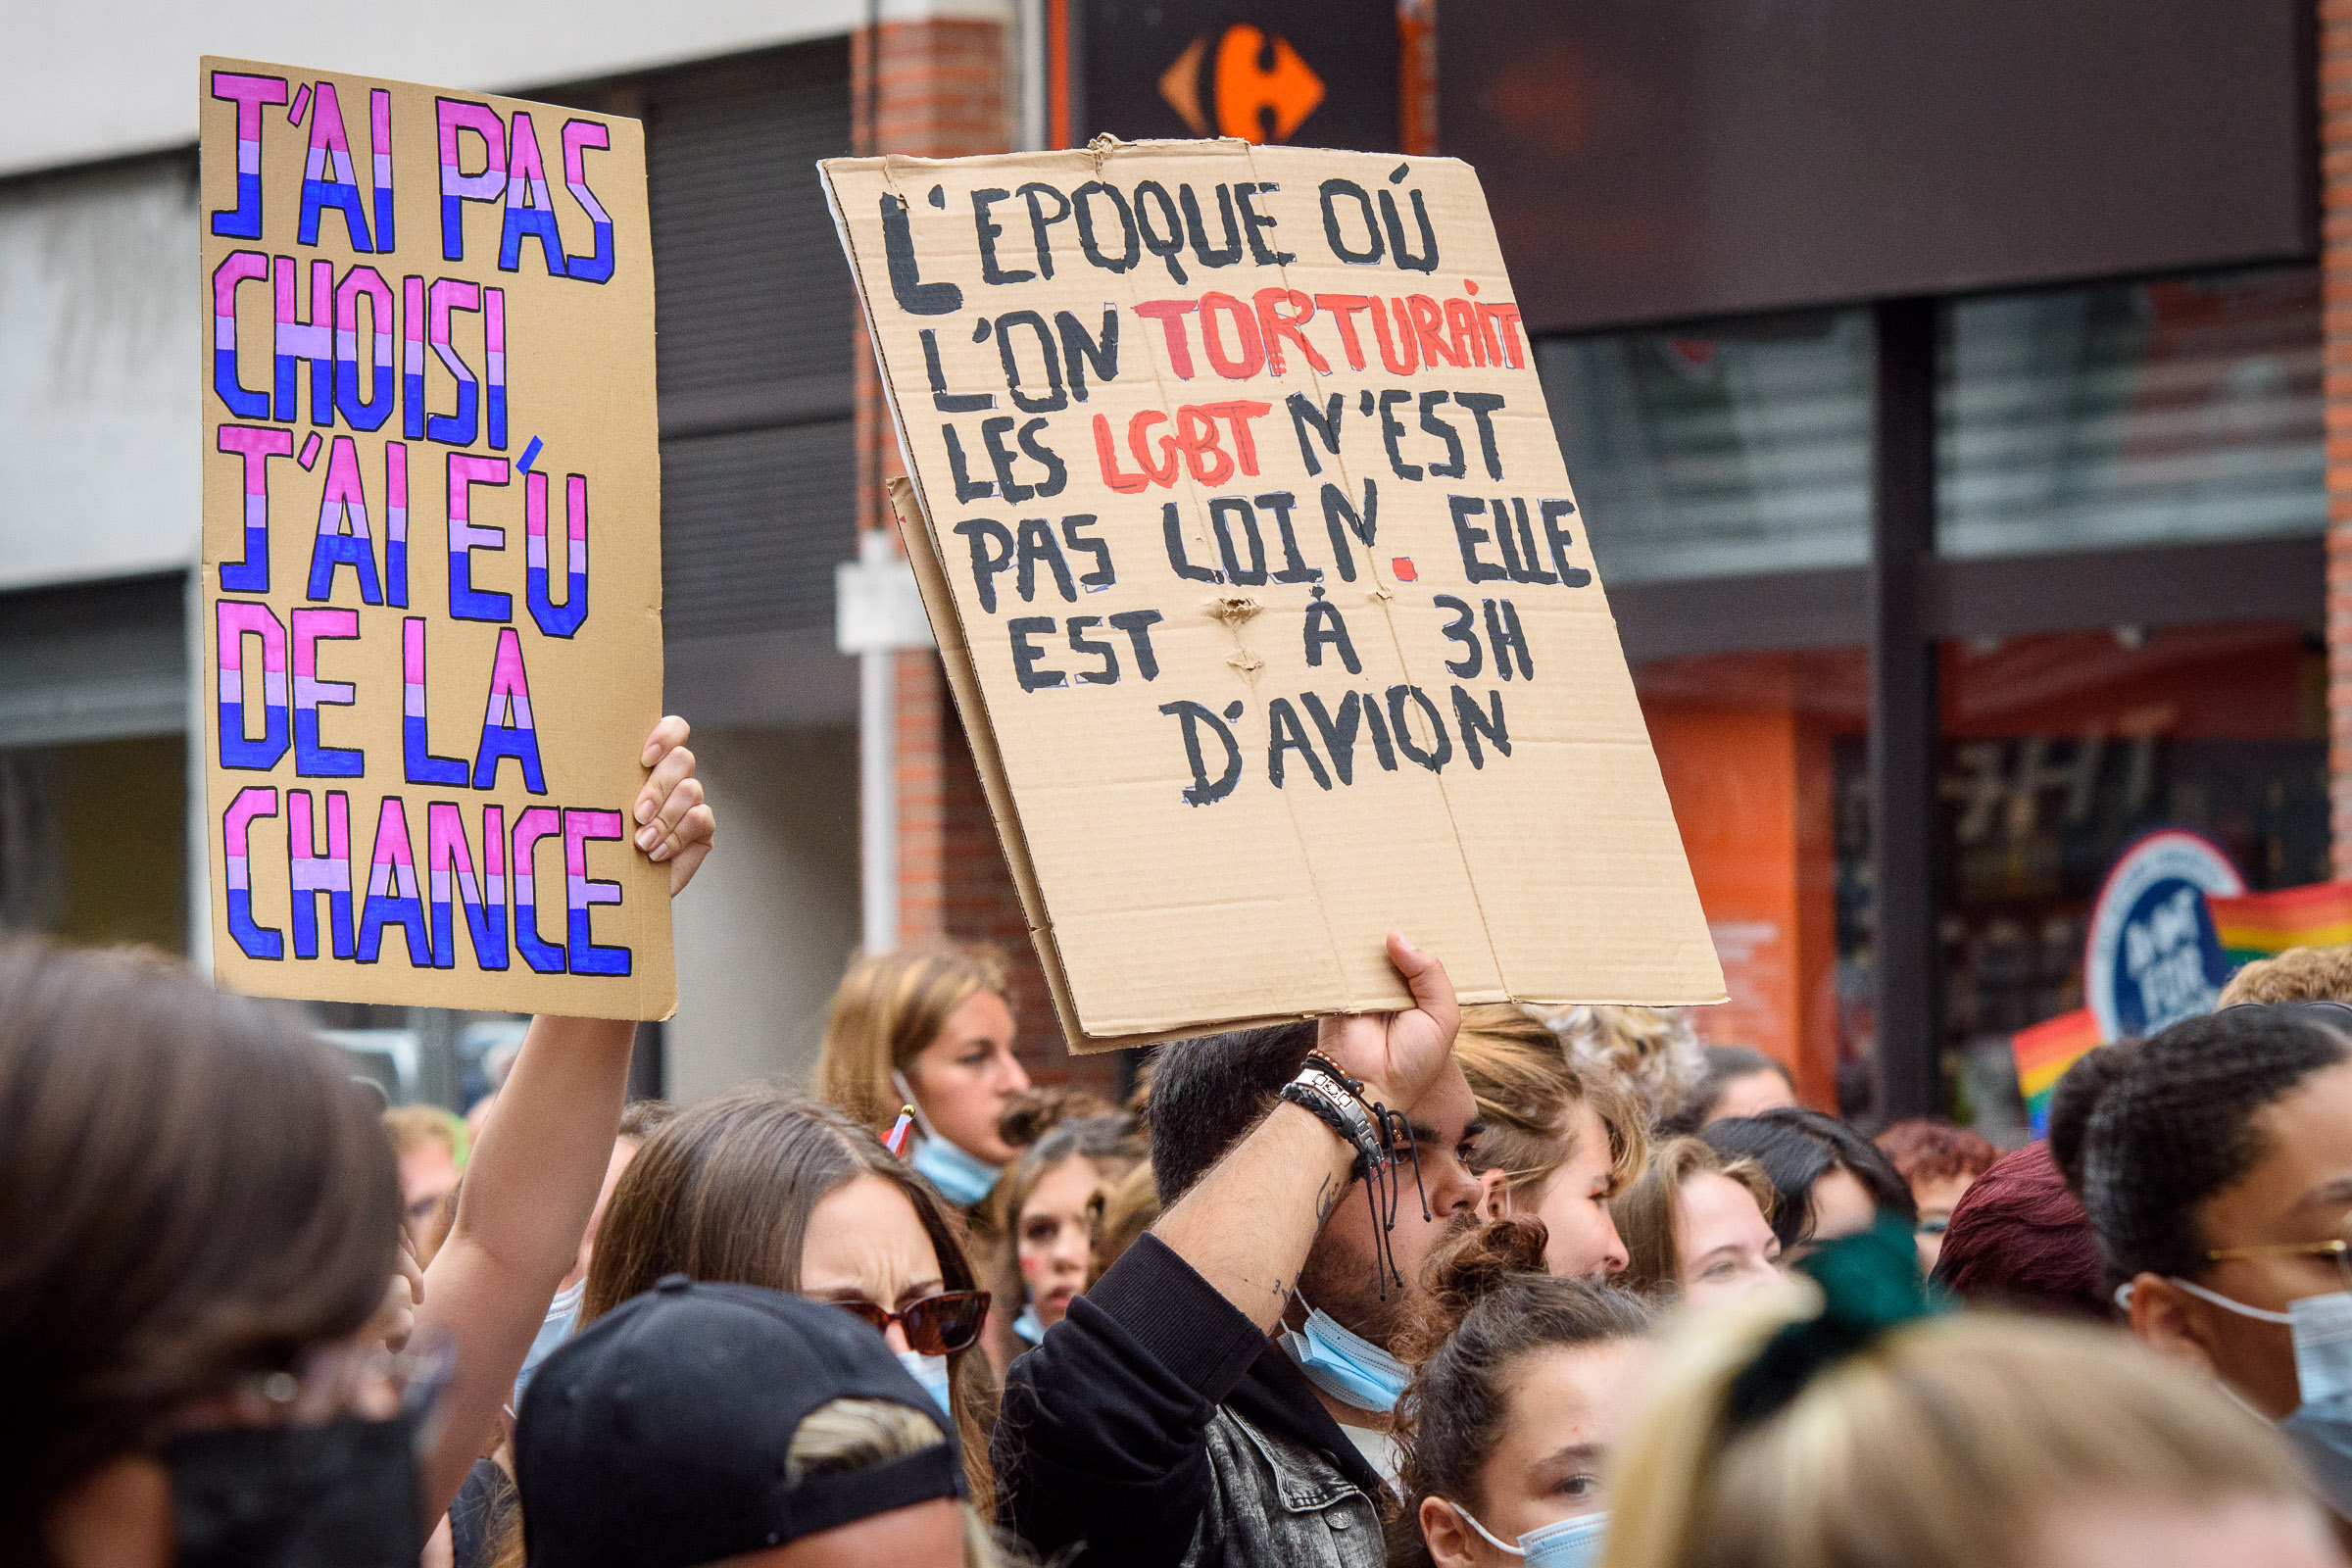 J'AI PAS
CHOISI,
J'AI EU
DE LA
CHANCE
L'EPOQUE OÚ
L'ON TORTURAIT
LES LGBT N'EST
PAS LOIN. ELLE
EST À 3H
D'AVION
FOR